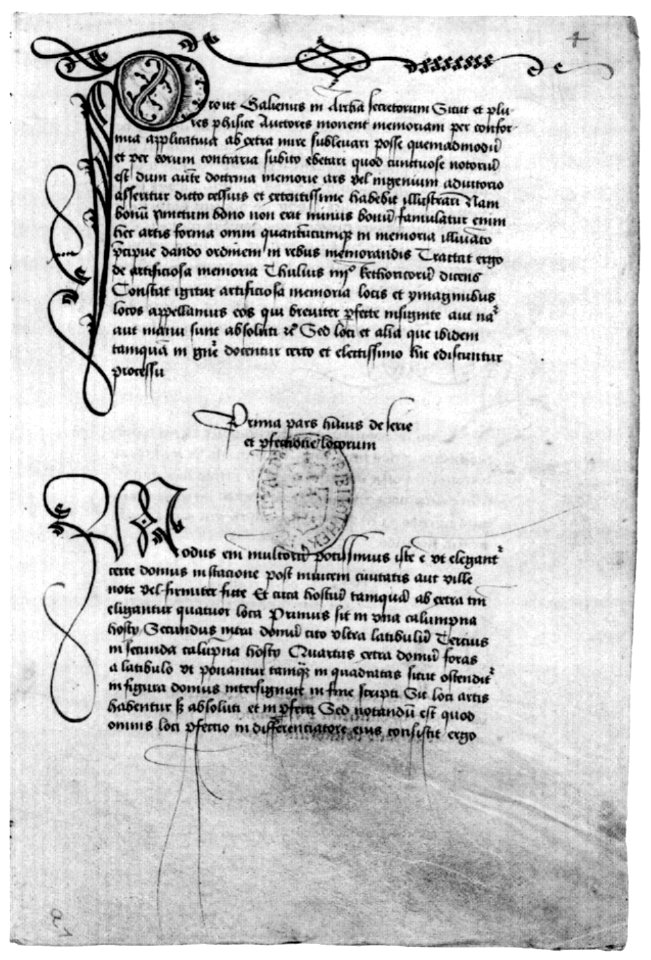 4
Prout Galienus in Archa secretorum Sicut et plu-
res phisice Auctores monent memoriam per confor-
mia applicativa ab extra mire sublevari posse quemadmodum
et per eorum contraria subito ebetari quod cunctuose notorium
est dum autem doctrina memorie ars vel ingenium adiutorio
asseritur dicto celsius et excentissime habebit illustrari Nam
bonum coniunctum bono non erit minus bonum famulatur enim
hec artis forma omni quantumcumque in memoria illuminato
precipue dando ordinem in rebus memorandis Trattat ergo
de artificiosa memoria Thulius iiii Rethoricorum dicens
Constat igitur artificiosa memoria locis et ymaginibus
locos appellamus eos qui breviter perfecte insignite aut na
aut manu sunt absoluti Sed loci et alia que ibidem
tamquam in genere docentur certo et electissimo hic ediscuntur
processu
Prima pars huius de serie
et perfectione locorum
Modus enim multorum potissimus iste e ut elegant
certe domus in stacione post murem civitatis aut ville
note vel firmiter ficte Et circa hostium tamquam ab extra tm
eligantur quatuor loca Primus sit in una calumpna
hosty Secundus intra domum cito ultra latibulum Tercius
in secunda calumpna hosty Quartus extra domum foras
a latibulo ut ponantur tamquam in quadratas sicut ostenditur
in figura domus intersignate in fine scripti Sic loci artis
habentur sed absoluti et imperfecti Sed notandum est quod
omnis loci perfectio in differenciatore eius consistit ergo
a1